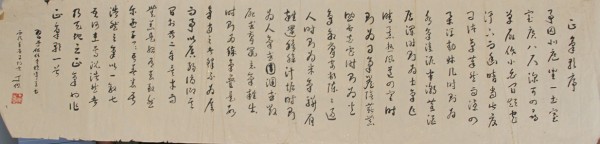 正氣歌序
予囚北庭坐一土室
室廣八尺深可四尋
單扉低小白間短窄
汙下而幽暗當此夏
日諸氣萃然雨潦四
集浮動床几時則為
水氣塗泥半潮蒸漚
歷瀾時則為土氣乍
晴暴熱風道四塞時
則為日氣簷陰薪爨
助長炎虐時則為火
氣倉腐寄頓陳陳逼
人時則為米氣駢肩
雜遝腥臊汗垢時則
為人氣或圊溷或毀
屍或腐鼠惡氣雜出
時則為穢氣疊是數
氣當之者鮮不為厲
而予以孱弱俯仰其
間於茲二年矣
無恙是殆有養致然
浩然之氣以一敵七
吾何患焉況浩然者
乃天地之正氣也作
正氣歌一首